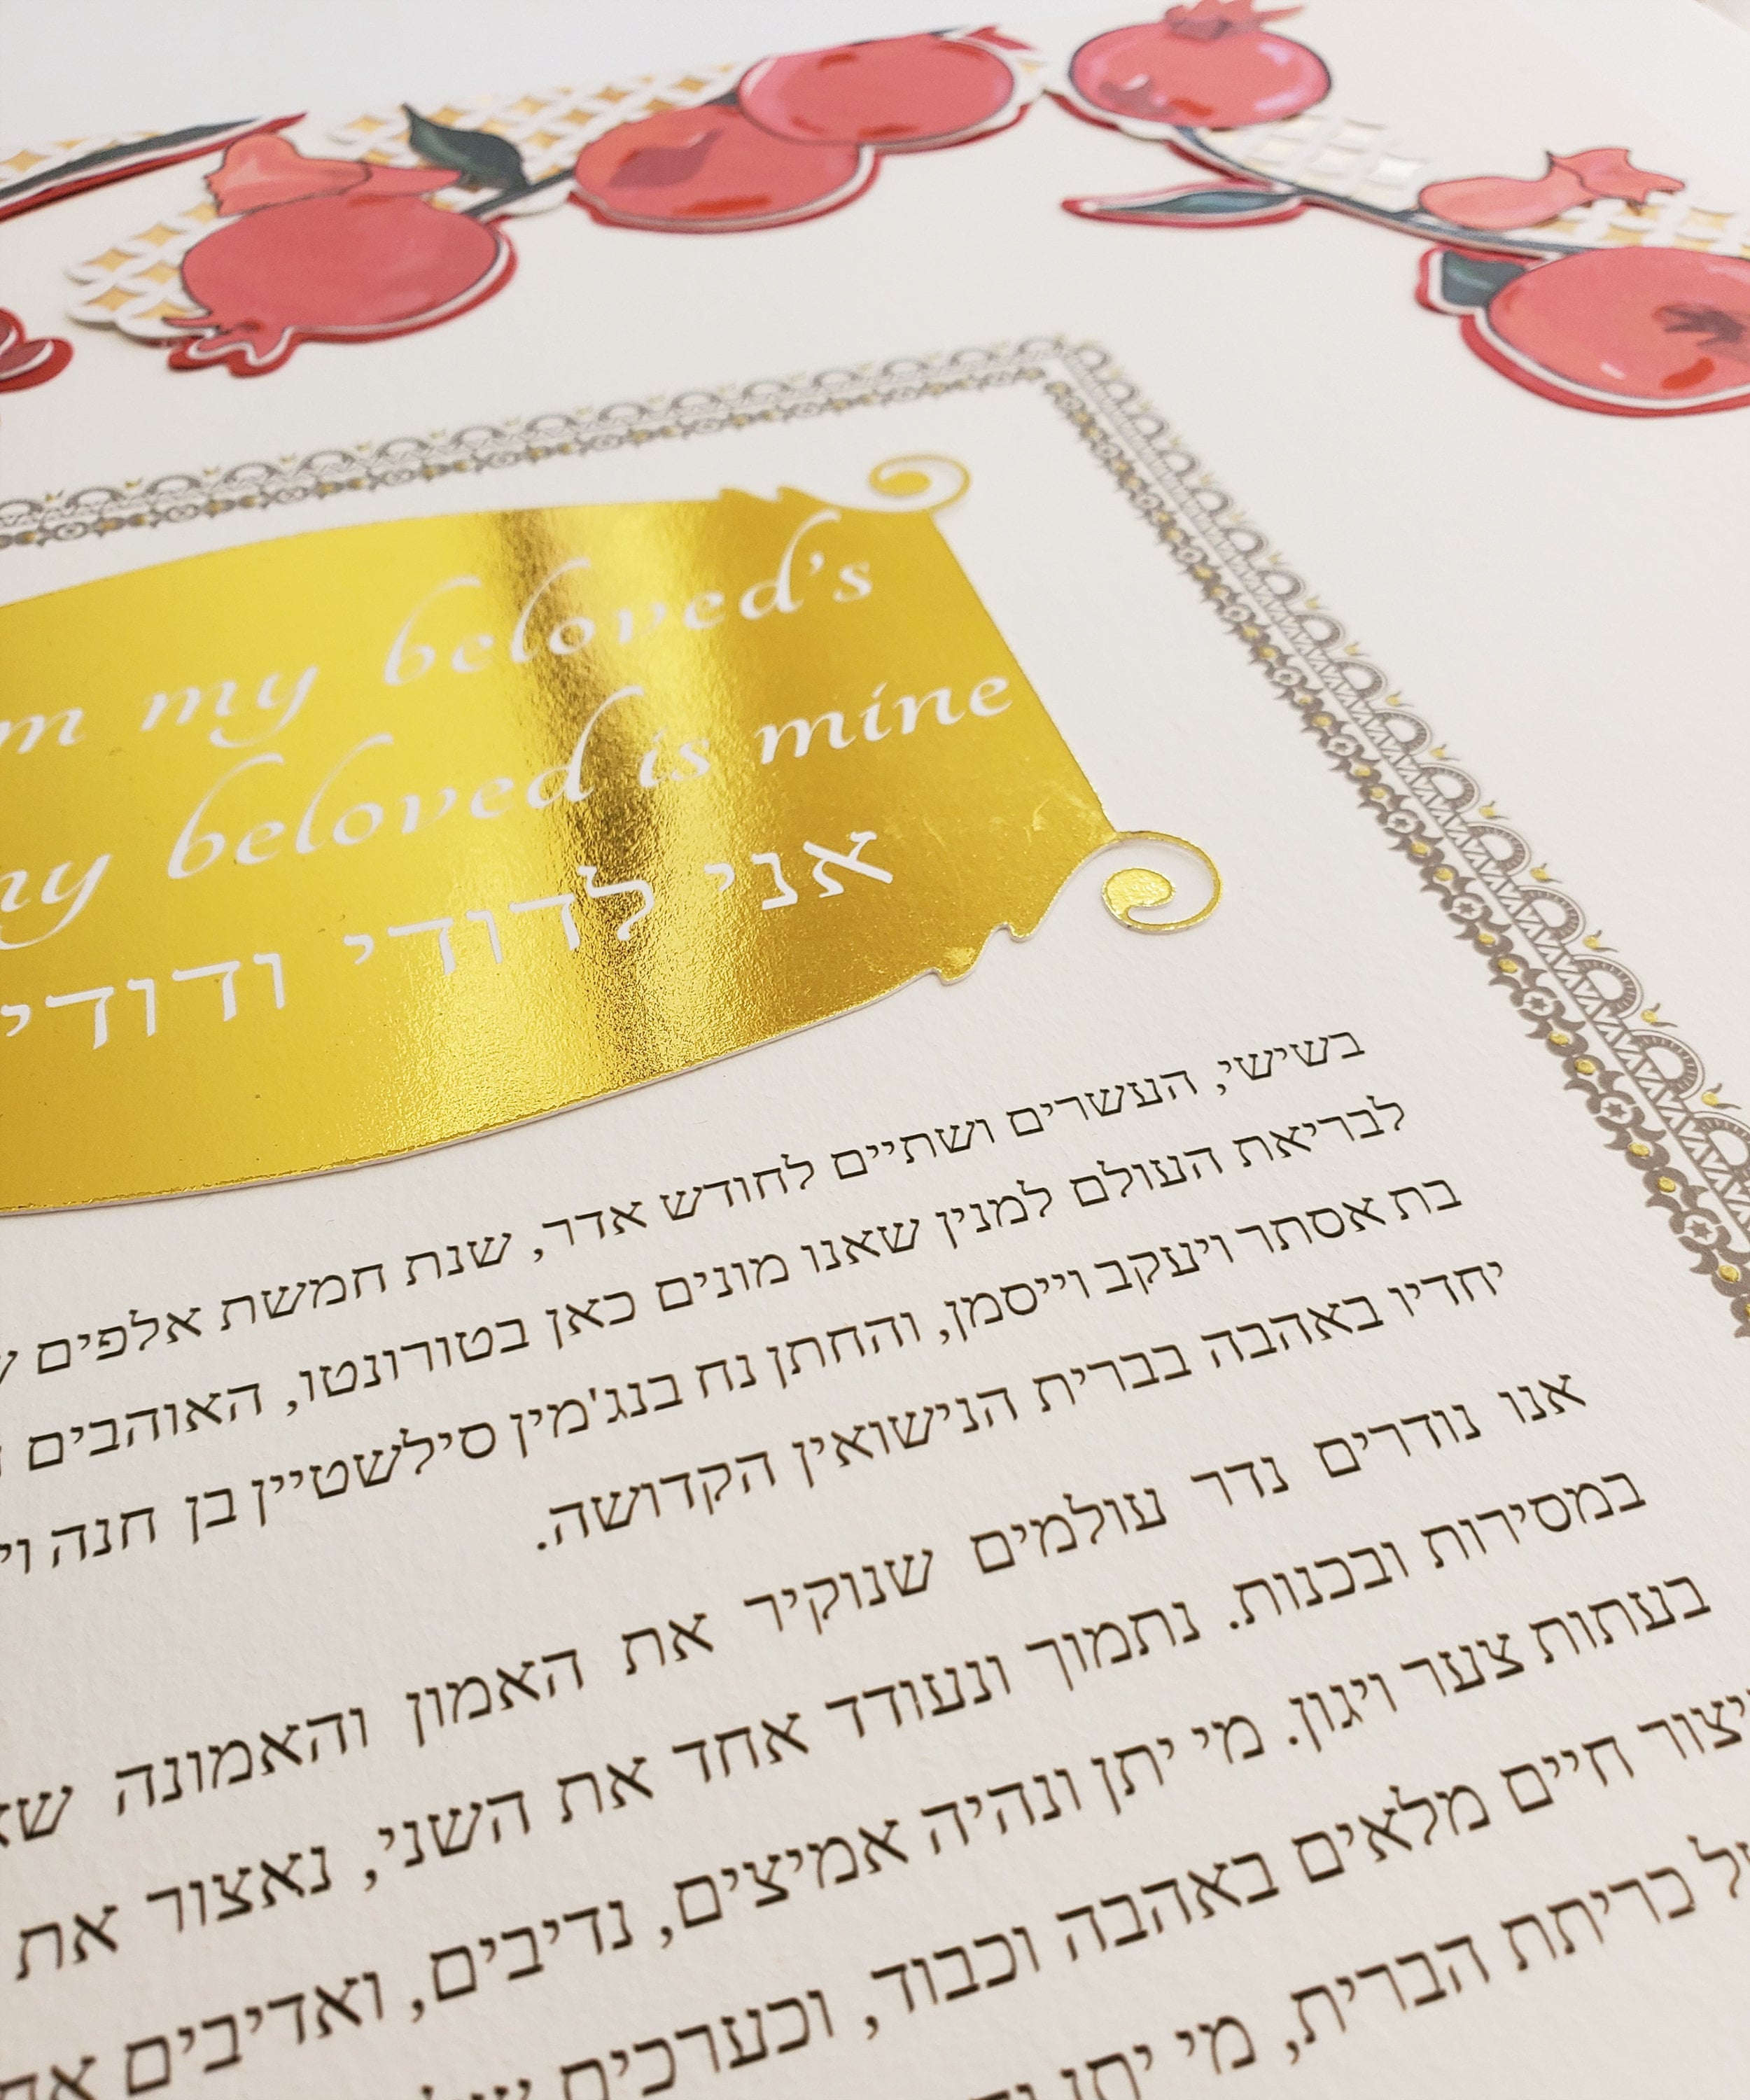 my beloved's
beloved is mine
אני לדודי ודודי
בשישי, העשרים ושתיים לחודש אדר, שנת חמשת אלפים
לבריאת העולם למנין שאנו מונים כאן בטורונטו, האוהבים
בת אסתר ויעקב וייסמן, והחתן נח בנג'מין סילשטיין בן חנה
יחדיו באהבה בברית הנישואין הקדושה.
אנו נודרים נדר עולמים שנוקיר את האמון והאמונה
במסירות ובכנות. נתמוך ונעודד אחד את השני, נאצור את
בעתות צער ויגון. מי יתן ונהיה אמיצים, נדיבים, ואדיבים
חיים מלאים באהבה וכבוד, וכערכים
כריתת הברית, מי יתן